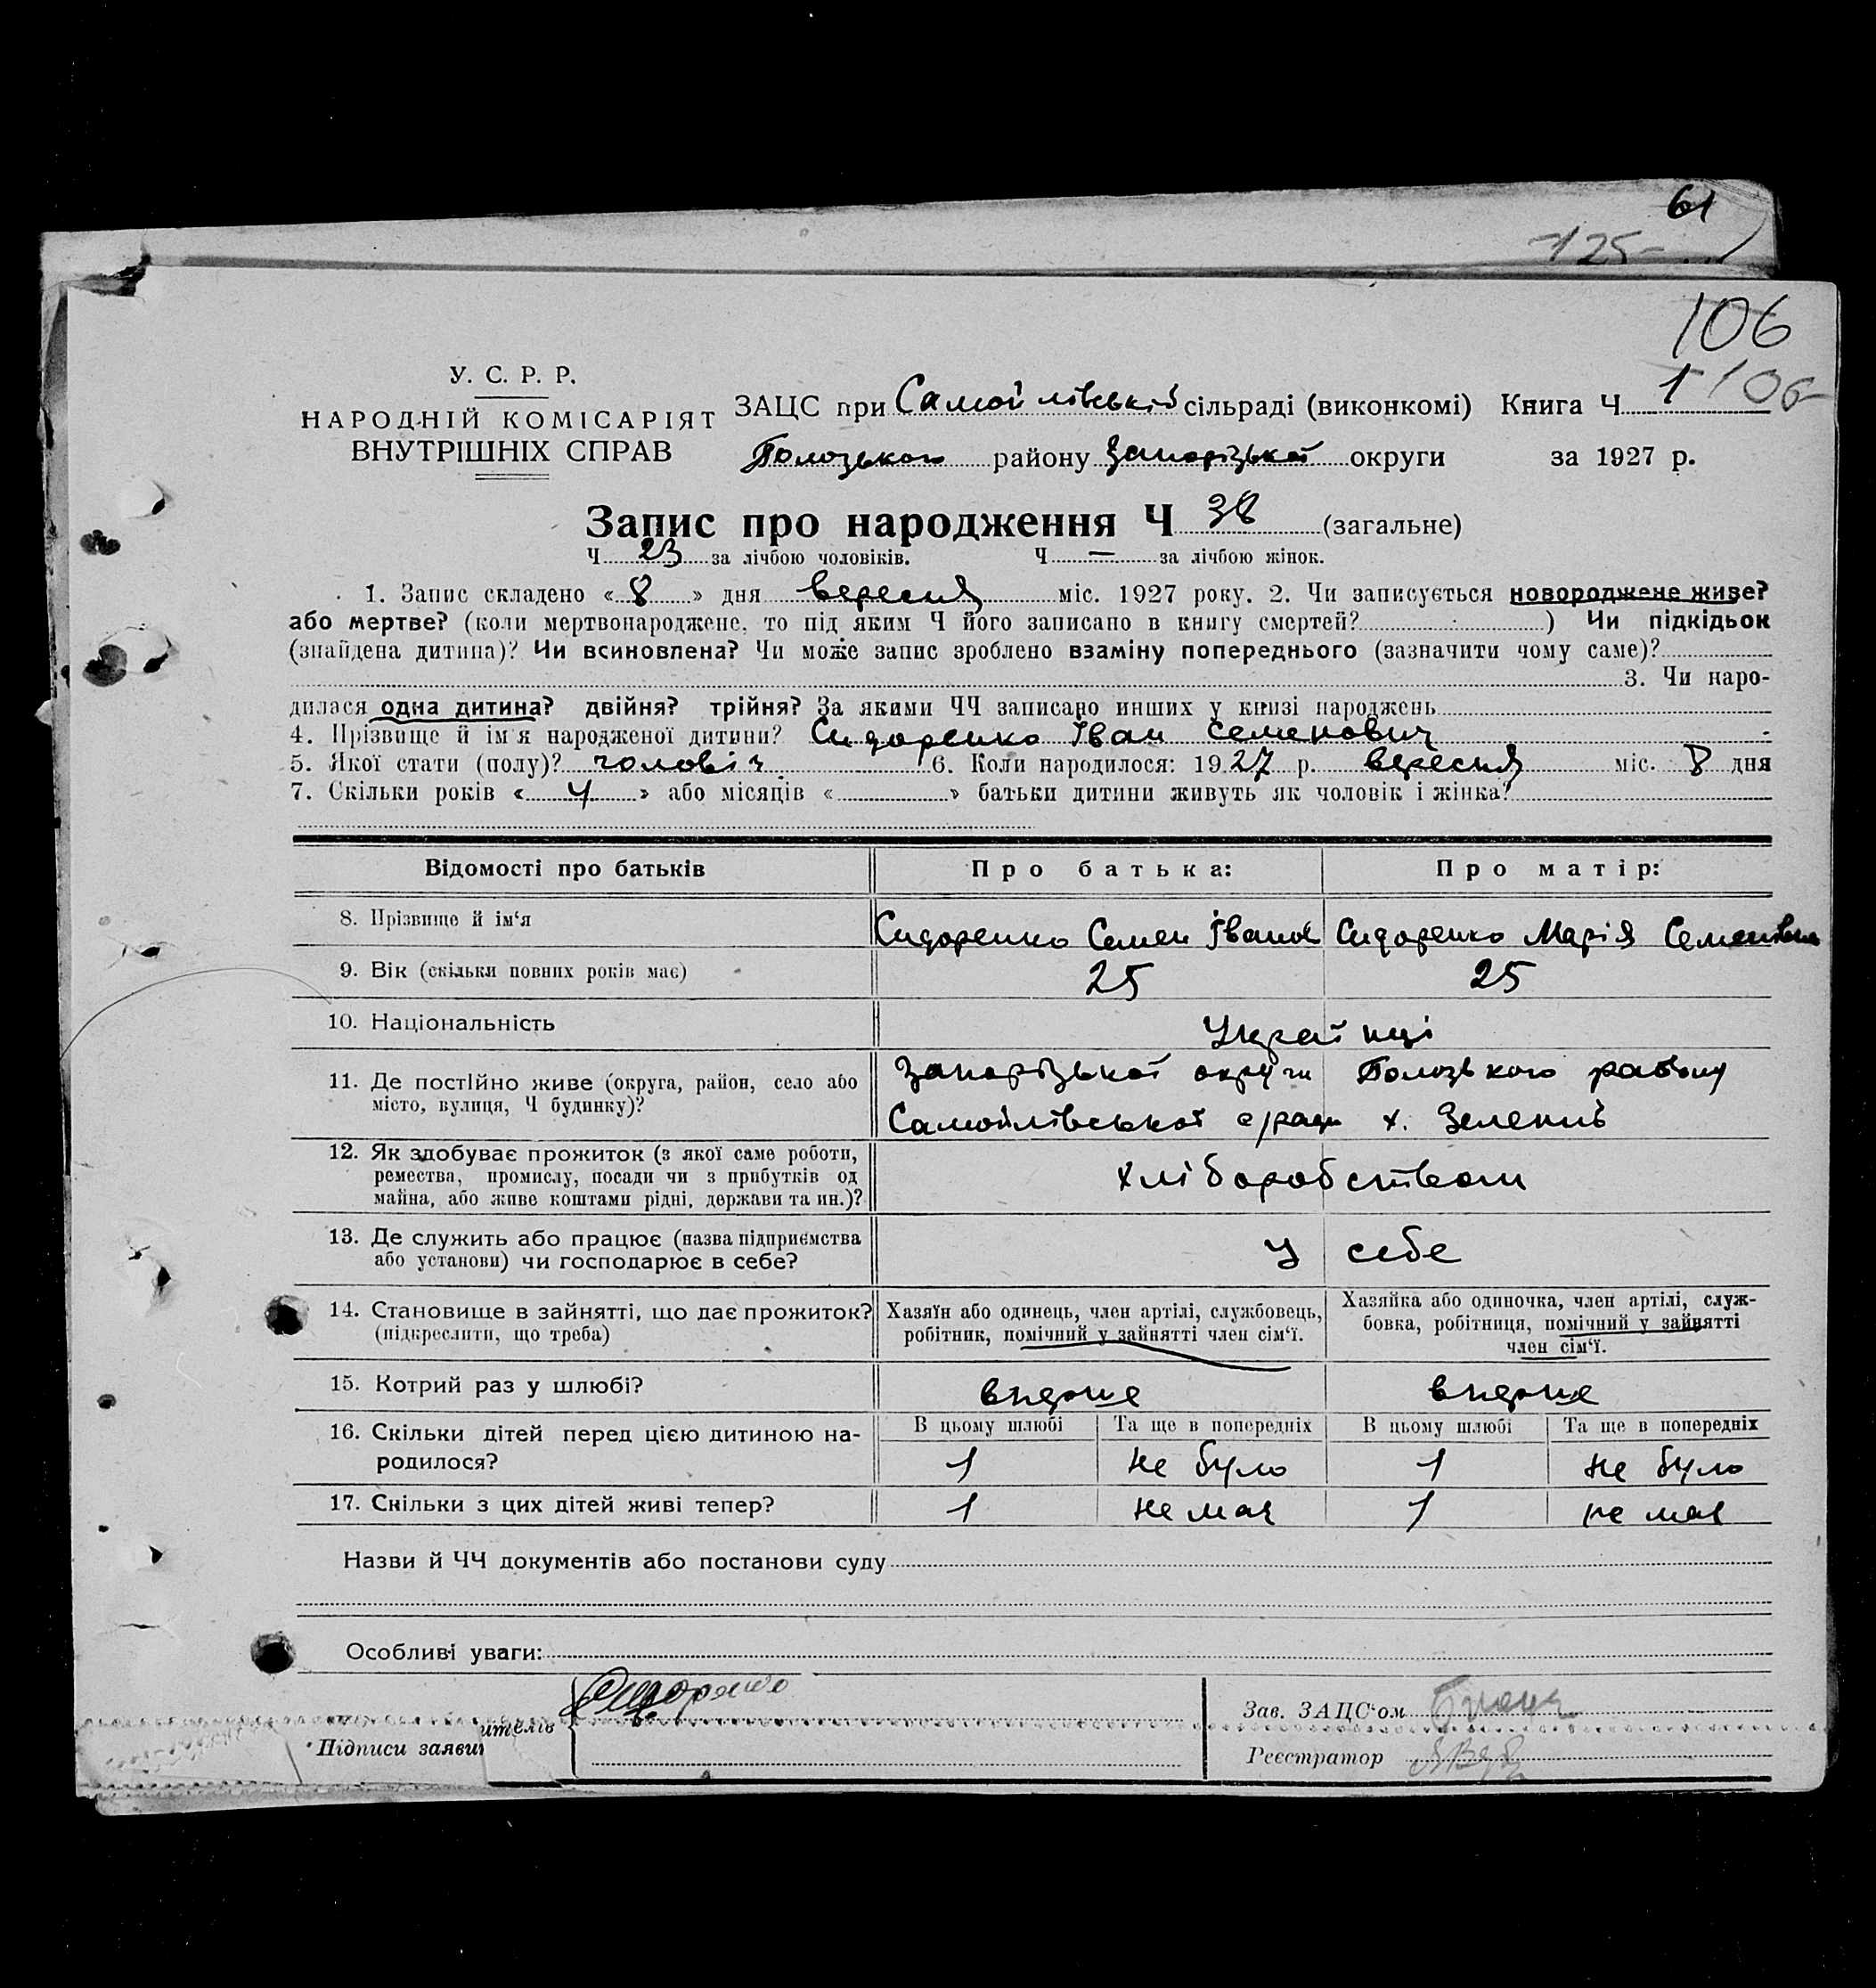 61
-125-
106
106-
У. С. Р. Р.
НАРОДНІЙ КОМІСАРІЯТ
ВНУТРІШНІХ СПРАВ
ЗАЦС при Самойлівській сільраді (виконкомі) Книга Ч 1
Пологзького району Запорізької округи за 1927 р.
Запис про народження Ч 38 (загальне)
Ч 23 за лічбою чоловіків. Ч — за лічбою жінок.
1. Запис складено « 8 » дня вересня міс. 1927 року. 2. Чи записується новороджене живе?
або мертве? (коли мертвонароджене, то під яким Ч його записано в книгу смертей? ) Чи підкідьок
(знайдена дитина)? Чи всиновлена? Чи може запис зроблено взаміну попереднього (зазначити чому саме)?
3. Чи наро-
дилася одна дитина? двійня? трійня? За якими ЧЧ записано инших у книзі народжень
4. Прізвище й ім'я народженої дитини? Сидоренко Іван Семенович
5. Якої стати (полу)? чоловіч. 6. Коли народилося: 1927 р. вересня міс. 8 дня
7. Скільки років « 4 » або місяців « » батьки дитини живуть як чоловік і жінка?
Відомості про батьків Про батька: Про матір:
8. Прізвище й ім'я Сидоренко Семен Іванов Сидоренко Марія Семенівна
9. Вік (скільки повних років має) 25 25
10. Національність Українці
11. Де постійно живе (округа, район, село або місто, вулиця, Ч будинку)? Запорізької округи Пологзького району
Самойлівської с/ради х. Зелений
12. Як здобуває прожиток (з якої саме роботи,
ремества, промислу, посади чи з прибутків од
майна, або живе коштами рідні, держави та ин.)? хліборобством
13. Де служить або працює (назва підприємства
або установи) чи господарює в себе? у себе
14. Становище в зайнятті, що дає прожиток?
(підкреслити, що треба)
Хазяїн або одинець, член артілі, службовець,
робітник, помічний у зайнятті член сім'ї.
Хазяйка або одиночка, член артілі, служ-
бовка, робітниця, помічний у зайнятті
член сім'ї.
15. Котрий раз у шлюбі?
16. Скільки дітей перед цією дитиною на-
родилося?
В цьому шлюбі Та ще в попередніх В цьому шлюбі Та ще в попередніх
1 не було 1 не було
17. Скільки з цих дітей живі тепер? 1 не має 1 не має
Назви й ЧЧ документів або постанови суду
Особливі уваги:
Сидоренко
ителів
Підписи заяви
Зав. ЗАЦС'ом
Реєстратор